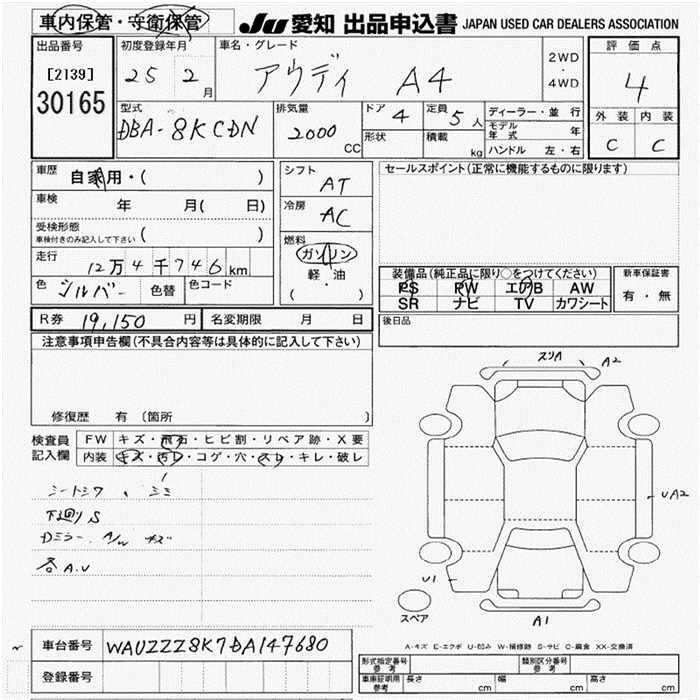 車内保管・守衛保管
JU 愛知 出品申込書 JAPAN USED CAR DEALERS ASSOCIATION
出品番号
[2139]
30165
初度登録年月
25 2月
車名・グレード
アウディ A4
2WD
・
4WD
評価点
4
外装 内装
C C
型式
DBA-8KCDN
排気量
2000 CC
ドア 4
形状
定員 5人
積載 kg
ディーラー・並行
モデル年式 年
ハンドル 左・右
車歴
自家用・( )
車検
年 月( 日)
受検形態
車検付きのみ記入して下さい ( )
走行
12万4千746km
色 シルバー 色替 色コード
シフト
AT
冷房
AC
燃料
ガソリン
軽・油
( ・ )
セールスポイント(正常に機能するものに限ります)
装備品(純正品に限り○をつけてください)
PS PW エアB AW
SR ナビ TV カワシート
新車保証書
有・無
R券 19,150円 名変期限 月 日
後日品
注意事項申告欄(不具合内容等は具体的に記入して下さい)
修復歴 有 〔箇所 〕
検査員記入欄
FW キズ・飛石・ヒビ割・リペア跡・X要
内装 キズ・汚レ・コゲ・穴・スレ・キレ・破レ
シートシワ、シミ
下廻りS
Dミラー A/W キズ
各A.U
スリA A2
UA2
U1
A1
スペア
A-キズ E-エクボ U-凹み W-補修跡 S-サビ C-腐食 XX-交換済
車台番号 WAUZZZ8K7DA147680
登録番号
形式指定番号 参考
類別区分番号 参考
車庫証明用 参考 長さ cm 幅 cm 高さ cm